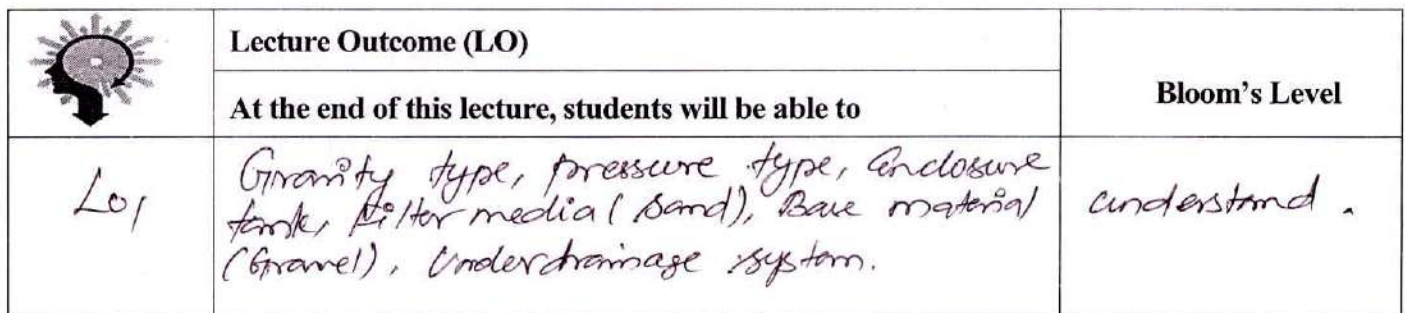 Lecture Outcome (LO)
At the end of this lecture, students will be able to
Bloom's Level
LO1
Gravity type, pressure type, enclosure
tank, filter media (sand), Base material
(Gravel), Underdrainage system.
understand.